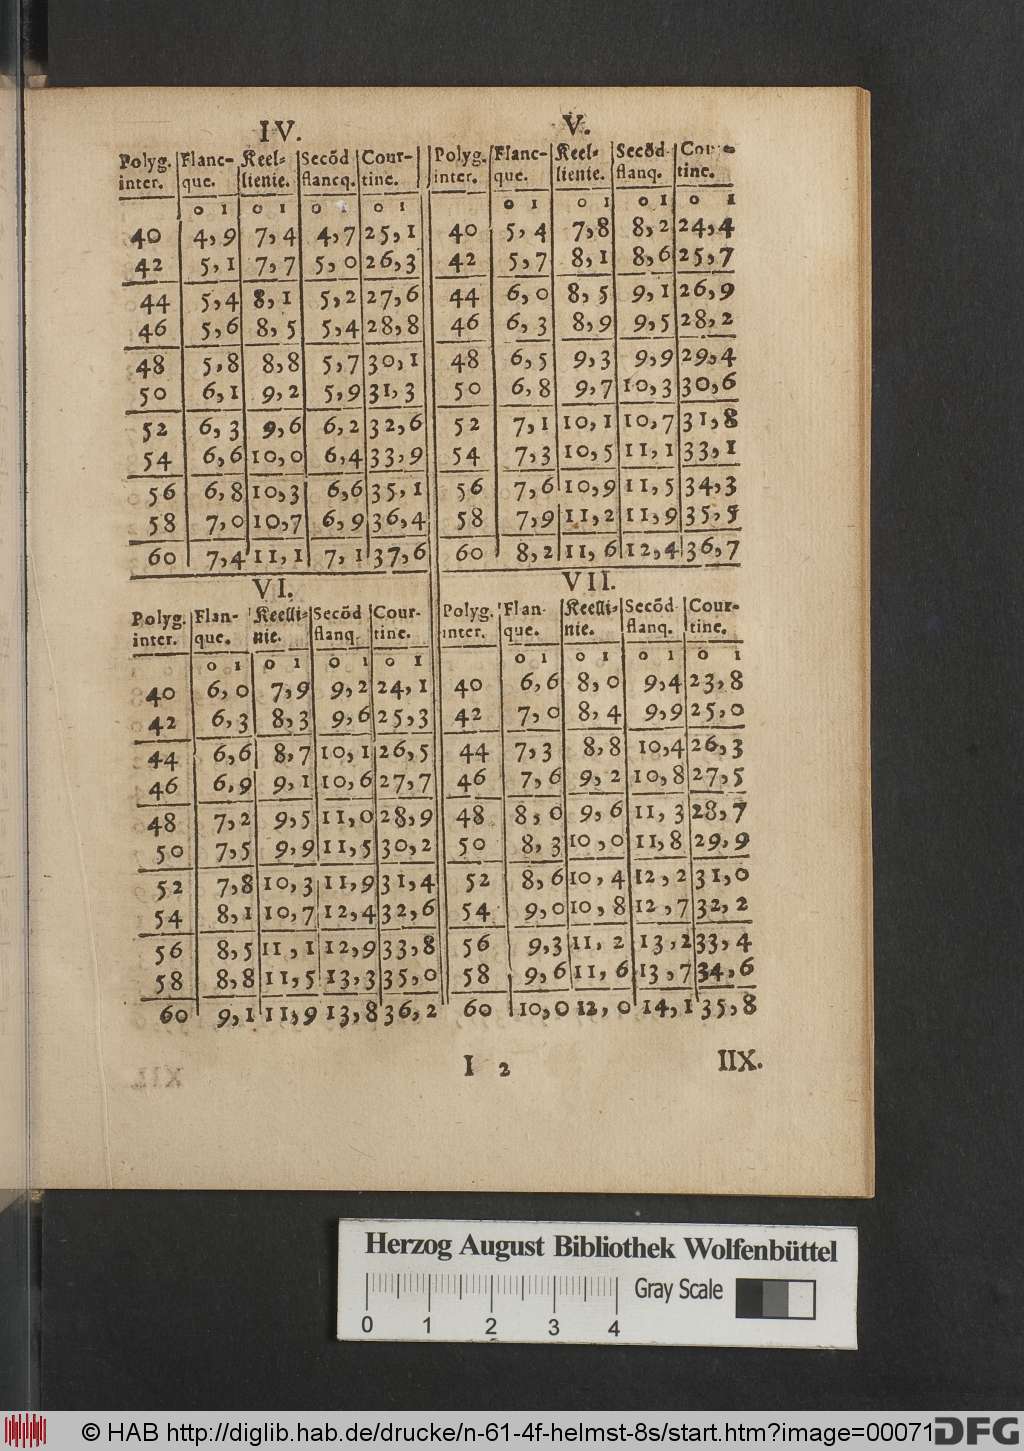 IV.
Polyg. Flanc- Keel= Secõd Cour-
inter. que. lienie. flancq. tine.
0 1 0 1 0 1 0 1
40 4,9 7,4 4,7 25,1
42 5,1 7,7 5,0 26,3
44 5,4 8,1 5,2 27,6
46 5,6 8,5 5,4 28,8
48 5,8 8,8 5,7 30,1
50 6,1 9,2 5,9 31,3
52 6,3 9,6 6,2 32,6
54 6,6 10,0 6,4 33,9
56 6,8 10,3 6,6 35,1
58 7,0 10,7 6,9 36,4
60 7,4 11,1 7,1 37,6
V.
Polyg. Flanc- Keel= Secõd
inter. que. lienie. flanq. tine.
0 1 0 1 0 1 0 1
40 5,4 7,8 8,2 24,4
42 5,7 8,1 8,6 25,7
44 6,0 8,5 9,1 26,9
46 6,3 8,9 9,5 28,2
48 6,5 9,3 9,9 29,4
50 6,8 9,7 10,3 30,6
52 7,1 10,1 10,7 31,8
54 7,3 10,5 11,1 33,1
56 7,6 10,9 11,5 34,3
58 7,9 11,2 11,9 35,5
60 8,2 11,6 12,4 36,7
VI.
Polyg. Flan- Keelli= Secõd Cour-
inter. que. nie. flanq. tine.
0 1 0 1 0 1 0 1
40 6,0 7,9 9,2 24,1
42 6,3 8,3 9,6 25,3
44 6,6 8,7 10,1 26,5
46 6,9 9,1 10,6 27,7
48 7,2 9,5 11,0 28,9
50 7,5 9,9 11,5 30,2
52 7,8 10,3 11,9 31,4
54 8,1 10,7 12,4 32,6
56 8,5 11,1 12,9 33,8
58 8,8 11,5 13,3 35,0
60 9,1 11,9 13,8 36,2
VII.
Polyg. Flan- Keelli= Secõd Cour-
inter. que. nie. flanq. tine.
0 1 0 1 0 1 0 1
40 6,6 8,0 9,4 23,8
42 7,0 8,4 9,9 25,0
44 7,3 8,8 10,4 26,3
46 7,6 9,2 10,8 27,5
48 8,0 9,6 11,3 28,7
50 8,3 10,0 11,8 29,9
52 8,6 10,4 12,2 31,0
54 9,0 10,8 12,7 32,2
56 9,3 11,2 13,2 33,4
58 9,6 11,6 13,7 34,6
60 10,0 12,0 14,1 35,8
I 2 IIX.
Herzog August Bibliothek Wolfenbüttel
Gray Scale
0 1 2 3 4
© HAB http://diglib.hab.de/drucke/n-61-4f-helmst-8s/start.htm?image=00071 DFG